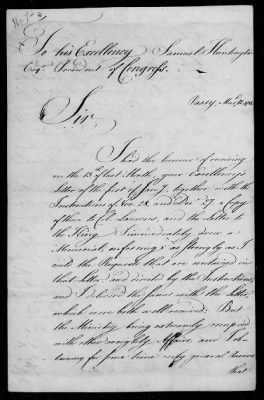 To his Excellency Samuel Huntington
Esqr. President of Congress.
Passy, March 12. 1781
Sir,
I had the honour of receiving
on the 13th of last Month, your Excellency's
Letter of the first of Jany. together with the
Instructions of Nov. 28, and Dec. 27. a Copy
of those to Col. Laurens, and the Letter to
the King. I immediately drew a
Memorial, enforcing as strongly as I
could the Requests that are contained in
that Letter and directed by the Instructions,
and I delivered the same with the Letter,
which were both well received; But
the Ministry being extreamly occupied
with other weighty Affairs, and I ob-
taining for some time only general Answers
that